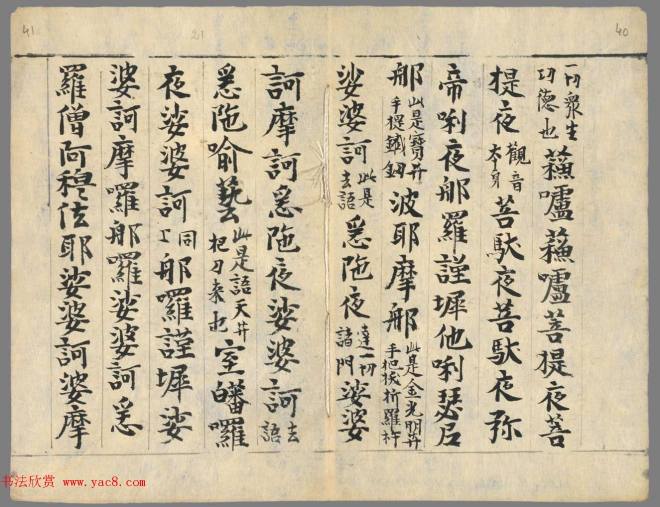 41
21
40
一切衆生
功德也
蘓嚧蘓嚧菩提夜菩
提夜
觀音
本身
菩馱夜菩馱夜弥
帝唎夜那羅謹墀他唎瑟尼
那
此是寶井
手提鐵
波耶摩那
此是金光明井
手把拔折羅杵
娑婆訶
此是
去語
悉陁夜
達一切
諸門
娑婆
訶摩訶悉陁夜娑婆訶
去
語
悉陁喻藝
此是語天井
把刀来也
室皤囉
夜娑婆訶
同
上
那羅謹墀娑
婆訶摩囉那囉娑婆訶悉
羅僧阿穆佉耶娑婆訶婆摩
书法欣赏 www.yac8.com